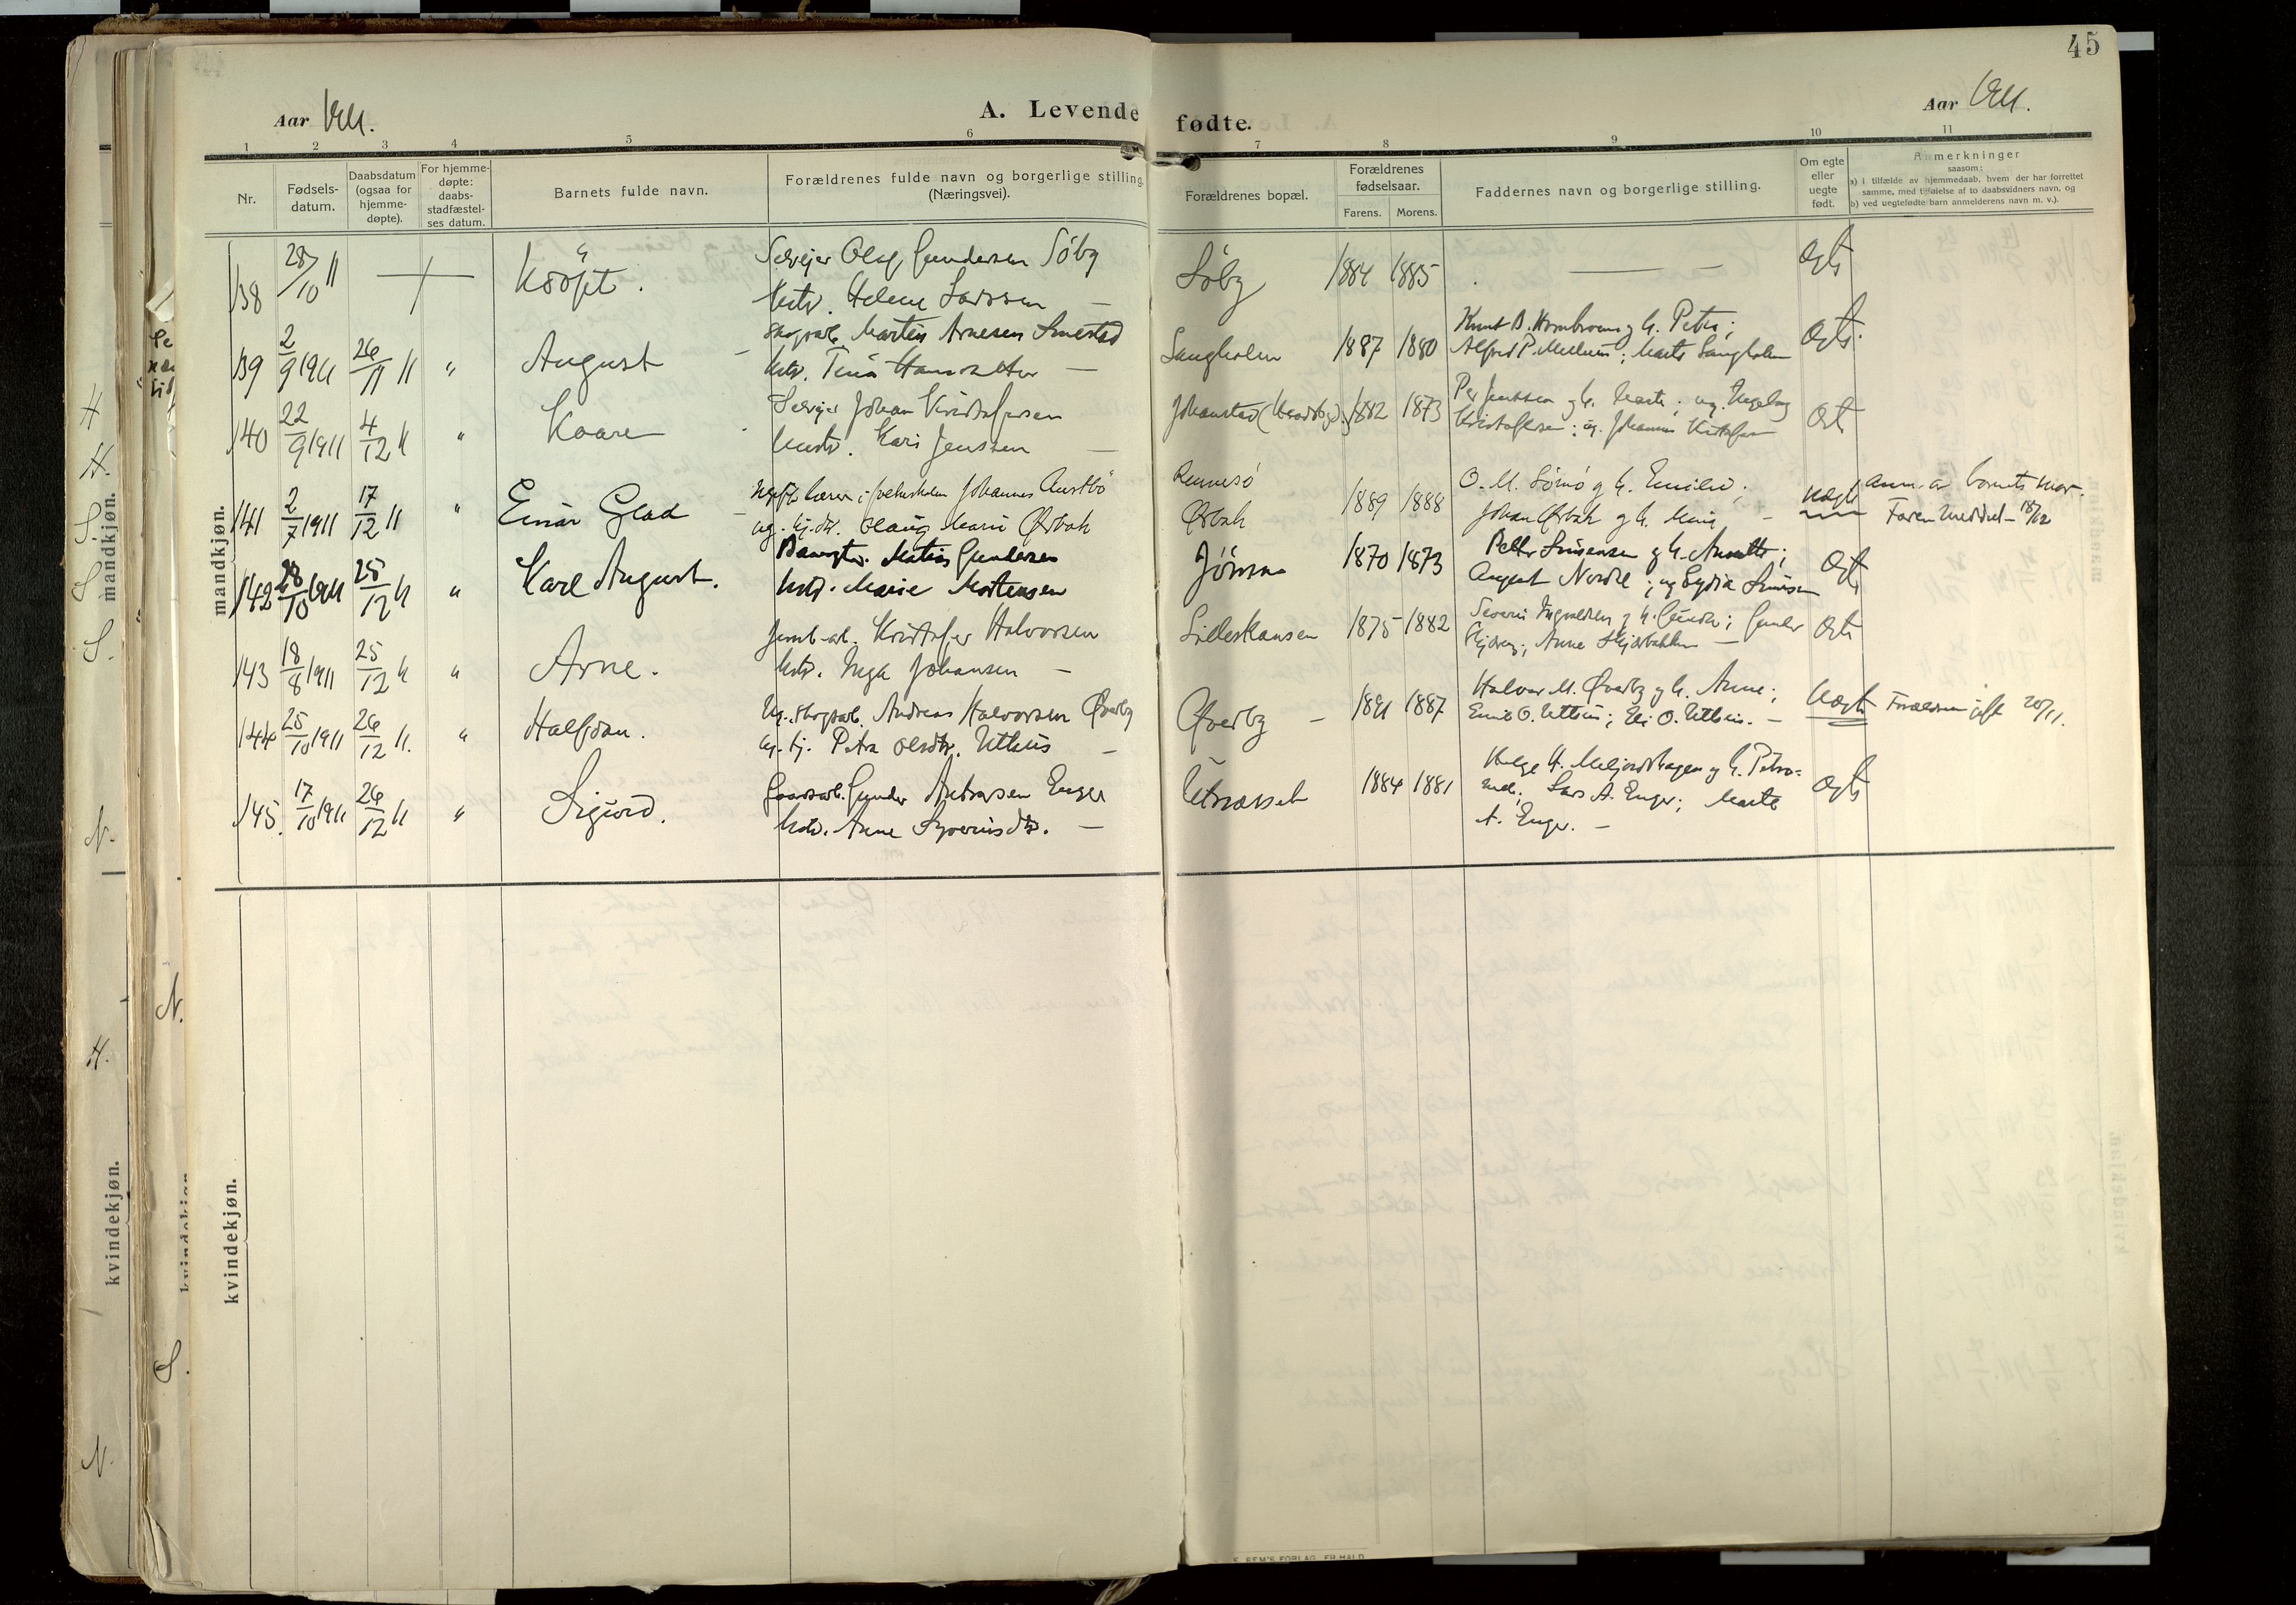 45
Aar 1911.
A. Levende
fødte.
Aar 1911.
1 2 3 4 5 6 7 8 9 10 11
Nr.
Fødsels-
datum.
Daabsdatum
(ogsaa for
hjemme-
døpte).
For hjemme-
døpte:
daabs-
stadfæstel-
ses datum.
Barnets fulde navn.
Forældrenes fulde navn og borgerlige stilling
(Næringsvei).
Forældrenes bopæl.
Forældrenes
fødselsaar.
Farens. Morens.
Faddernes navn og borgerlige stilling.
Om egte
eller
uegte
født.
Anmerkninger
saasom:
a) i tilfælde av hjemmedaab, hvem der har forrettet
samme, med tilføielse af to daabsvidners navn, og
b) ved uegtefødte barn anmelderens navn m. v.).
mandkjøn.
138 28/10 11 — Udöpt. Selveier Olaf Gundersen Söby
Hustr. Helene Larssen —
Söby 1884 1885 — Egte
139 2/9 1911 26/11 11 " August Skogsarb. Martin Arnesen Smestad
Hstr. Tina
Langholen 1887 1880 Knut B. og h. Petra;
Alfred P. Mellum; Marte Langholen
Egte
140 22/9 1911 4/12 11 " Kaare Selveier Johan Kristofersen
Hustr. Kari Jenssen —
Johanstad 1882 1873 Per Jenssen og h. Marte; ug. Ingeborg
Kristofersen; ug. Johannes Kristofersen
Egte
141 2/7 1911 17/12 11 " Einar Glad lærer i folkeskolen Johannes Austbö
ug. Olaug Marie Ørbak
Rennesö
Ørbak 1889 1888 O. M. Sörnö og h. Emilie;
Johan Ørbak og h. Marie —
Uegte Anm. av barnets mor.
Faren meddelt 18/12
142 28/10 1911 25/12 11 " Karl August. Banevogter Martin Gundersen
Hstr. Marie Mortensen
Jömna 1870 1873 Petter Simensen og h. Anette;
August Nordre; ug Lydia Simensen
Egte
143 18/8 1911 25/12 11 " Arne. Jernb.arb. Kristofer Halvorsen
Hstr. Inga Johansen —
Lilleskansen 1875 1882 Severin Ingvaldsen og h. Gunda; Gunder
Anne Skjærbakken —
Egte
144 25/10 1911 26/12 11. " Halfdan. Ug. skogsarb. Andreas Halvorsen Øverby
ug. tj. Petra Olsdtr. Uthus —
Øverby — 1891 1887 Halvor M. Øverby og h. Anne;
Emil O. Uthus; Eli O. Uthus. —
Uegte Forældrene gift 20/11.
145. 17/10 1911 26/12 11 " Sigurd. Gaardarb. Gunder Andersen Enger
Hstr. Anne Syverinsdtr. —
1884 1881 Helge H. Meljordshagen og h. Petro-
nelle; Lars A. Enger; Marte
A. Enger. —
Egte
kvindekjøn.
mandkjøn.
kvindekjøn.
H
H.
S.
S
S.
N.
N.
H.
S.
N.